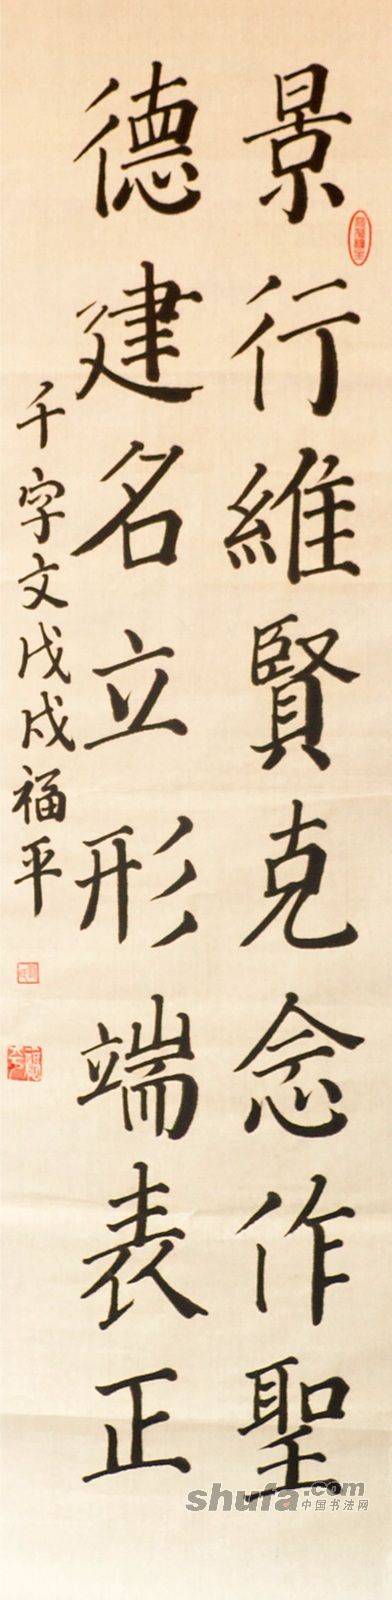 景行維賢克念作聖
德建名立形端表正
千字文戊戌福平
shufa.com
中国书法网